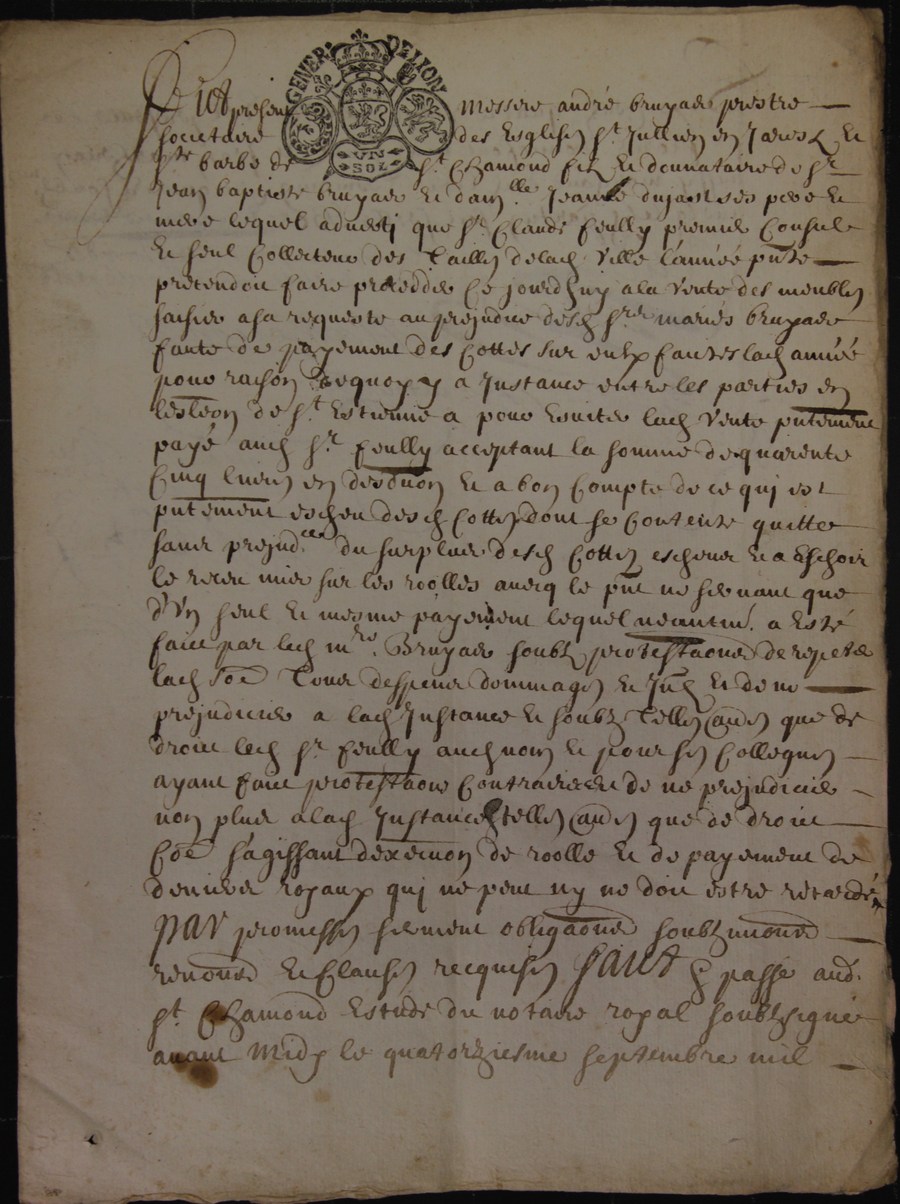 GENER. DE LION
UN SOL
Feut present Messire andré bruyas prestre
societaire des Esglises St Jullien en Jarests Et
Ste barbe de St Chamond filz Et donnataire de Sr
Jean baptiste bruyas Et damlle Jeanne dujast ses pere Et
mere lequel adverti que Sr Claude feully premier Consul
Et seul Collecteur des Tailles de lad ville l'année pnte
pretendoit faire proceddé Ce jourdhuy a la vente des meubles
saisies a sa requeste au prejudice desd Srs mariés bruyas
faute de payement des Cottes sur eulx faites lad année
pour raison dequoy y a Jnstance entre les parties en
lesleon de St Estienne a pour Esviter lad vente pntement
payé aud Sr feully acceptant la somme de quarente
Cinq livres en desduon Et a bon Compte de ce qui est
pntement escheu desd Cottes dont se Contente quitte
sans prejudce du surplus desd Cottes escheues Et a Eschoir
le receu mis sur les roolles avecq le pnt ne servant que
d'Un seul Et mesme payement lequel neantm. a Esté
faict par led mre Bruyas soubz protestaons de repeter
lad soe Tous despens dommages Et Jnts Et de ne
prejudicier a lad Jnstance Et soubz Telles autres que de
droict led Sr feully aud nom Et pour ses Collegues
ayant faict protestaons Contraires Et de ne prejudicier
non plus a lad Jnstance Et telles autres que de droict
Coe s'agissant dexecuon de roolle Et de payement de
deniers royaux qui ne peut ny ne doit estre retardé
par promesses serment obligaons soubzmions
renons Et Clauses recquises faict & passé aud.
St Chamond Estude du notaire royal soubzsigné
avant Midy le quatorziesme septembre mil